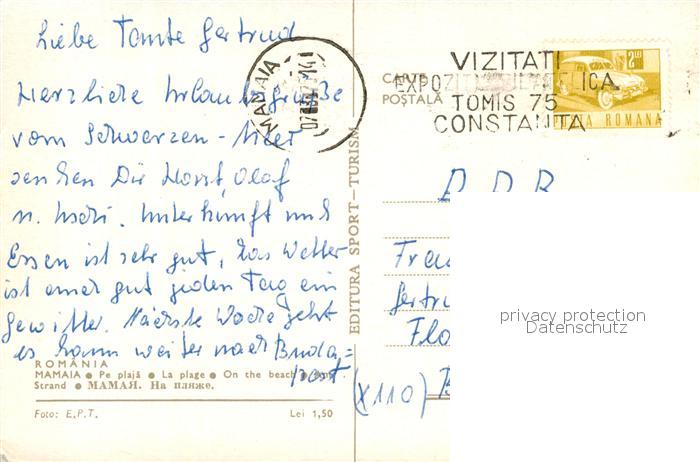 Liebe Tante Gertrud
Herzliche Urlaubsgrüße
vom Schwarzen-Meer
senden Dir Horst, Olaf
u. Uschi. Unterkunft und
Essen ist sehr gut, das Wetter
ist auch gut jeden Tag ein
Gewitter. Nächste Woche geht
es dann weiter nach Buda=
pest.
ROMÂNIA
MAMAIA ● Pe plajă ● La plage ● On the beach ● Am
Strand ● МАМАЯ. На пляже.
Foto: E.P.T. Lei 1,50
EDITURA SPORT—TURISM
MAMAIA
CARTE
POȘTALĂ
VIZITATI
EXPOZITIA FILATELICA
TOMIS 75
CONSTANTA
POSTA ROMANA
DDR
Frau
Gertru
Flo
(X110)
privacy protection
Datenschutz